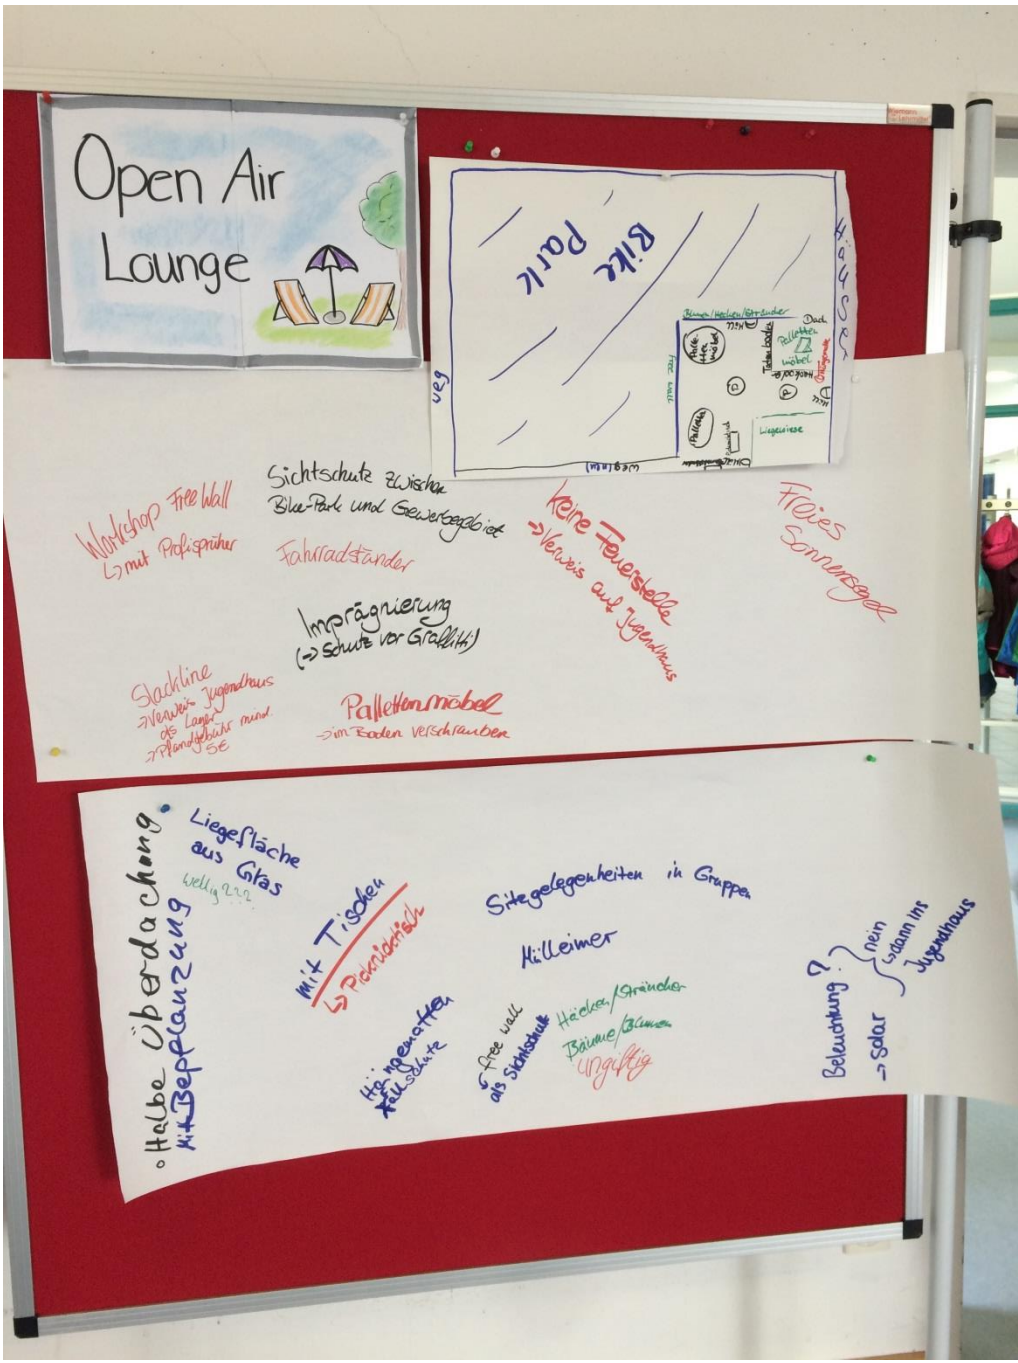 Open Air
Lounge
Bike
Park
Häuser
weg
Blumen/Hecken/Sträucher
free wall
Müll
Dach
Palletten
möbel
Müll
Liegewiese
Workshop Free Wall
↳ mit Profisprüher
Sichtschutz zwischen
Bike-Park und Gewerbegebiet
Fahrradständer
Imprägnierung
(→ Schutz vor Graffitti)
keine Feuerstelle
→ Verweis auf Jugendhaus
Freies
Sonnensegel
Slackline
→ Verweis Jugendhaus
als Lager
→ Pfandgebühr mind.
5€
Pallettenmöbel
→ im Boden verschrauben
Halbe Überdachung
mit Bepflanzung
Liegefläche
aus Gras
wellig???
mit Tischen
↳ Picknicktisch
Sitzgelegenheiten in Gruppen
Mülleimer
Hängematten
Fallschutz
free wall
als Sichtschutz
Häcken/Sträucher
Bäume/Blumen
ungiftig
Beleuchtung?
→ solar
nein
↳ dann ins
Jugendhaus